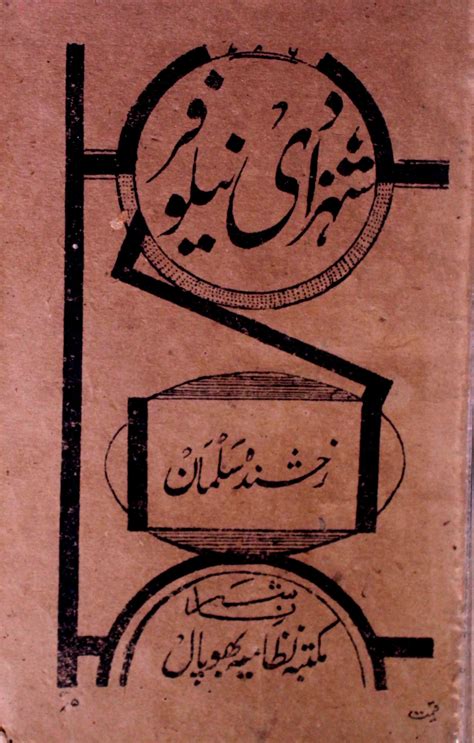 ۷۸۶
شہزادی نیلوفر
رخشند سلمان
ناشر
مکتبہ نظامیہ بھوپال
قیمت